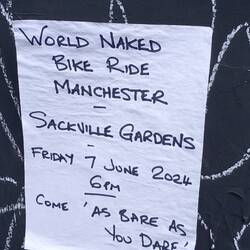 WORLD NAKED
BIKE RIDE
MANCHESTER
–
SACKVILLE GARDENS
–
FRIDAY 7 JUNE 2024
6PM
COME 'AS BARE AS
YOU DARE'